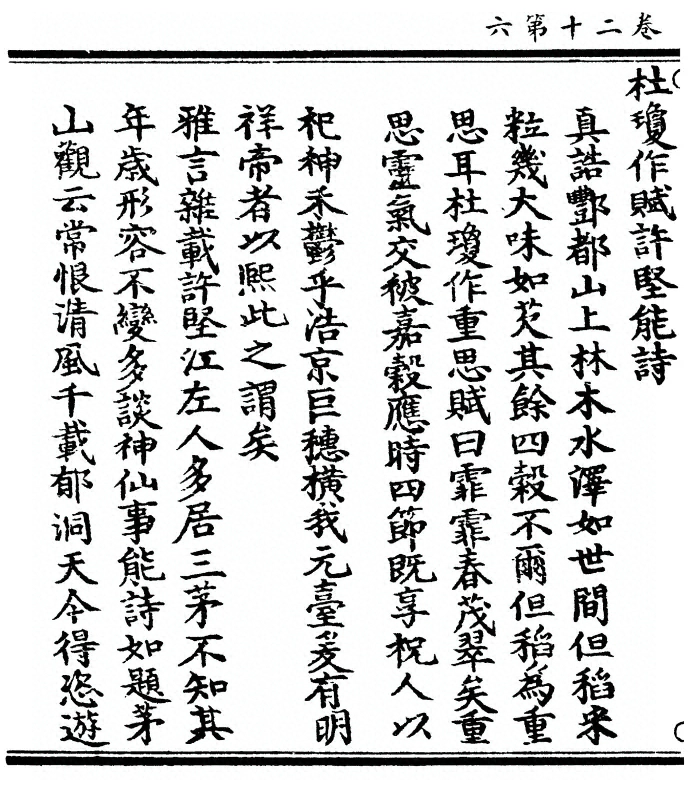 卷二十第六
杜瓊作賦許堅能詩
真誥酆都山上林木水澤如世間但稻米
粒幾大味如芡其餘四穀不爾但稻為重
思耳杜瓊作重思賦曰霏霏春茂翠矣重
思靈氣交被嘉穀應時四節既享祝人以
祀神禾鬱乎浩京巨穗橫我元臺爰有明
祥帝者以熙此之謂矣
雅言雜載許堅江左人多居三茅不知其
年歲形容不變多談神仙事能詩如題茅
山觀云常恨清風千載郁洞天今得恣遊